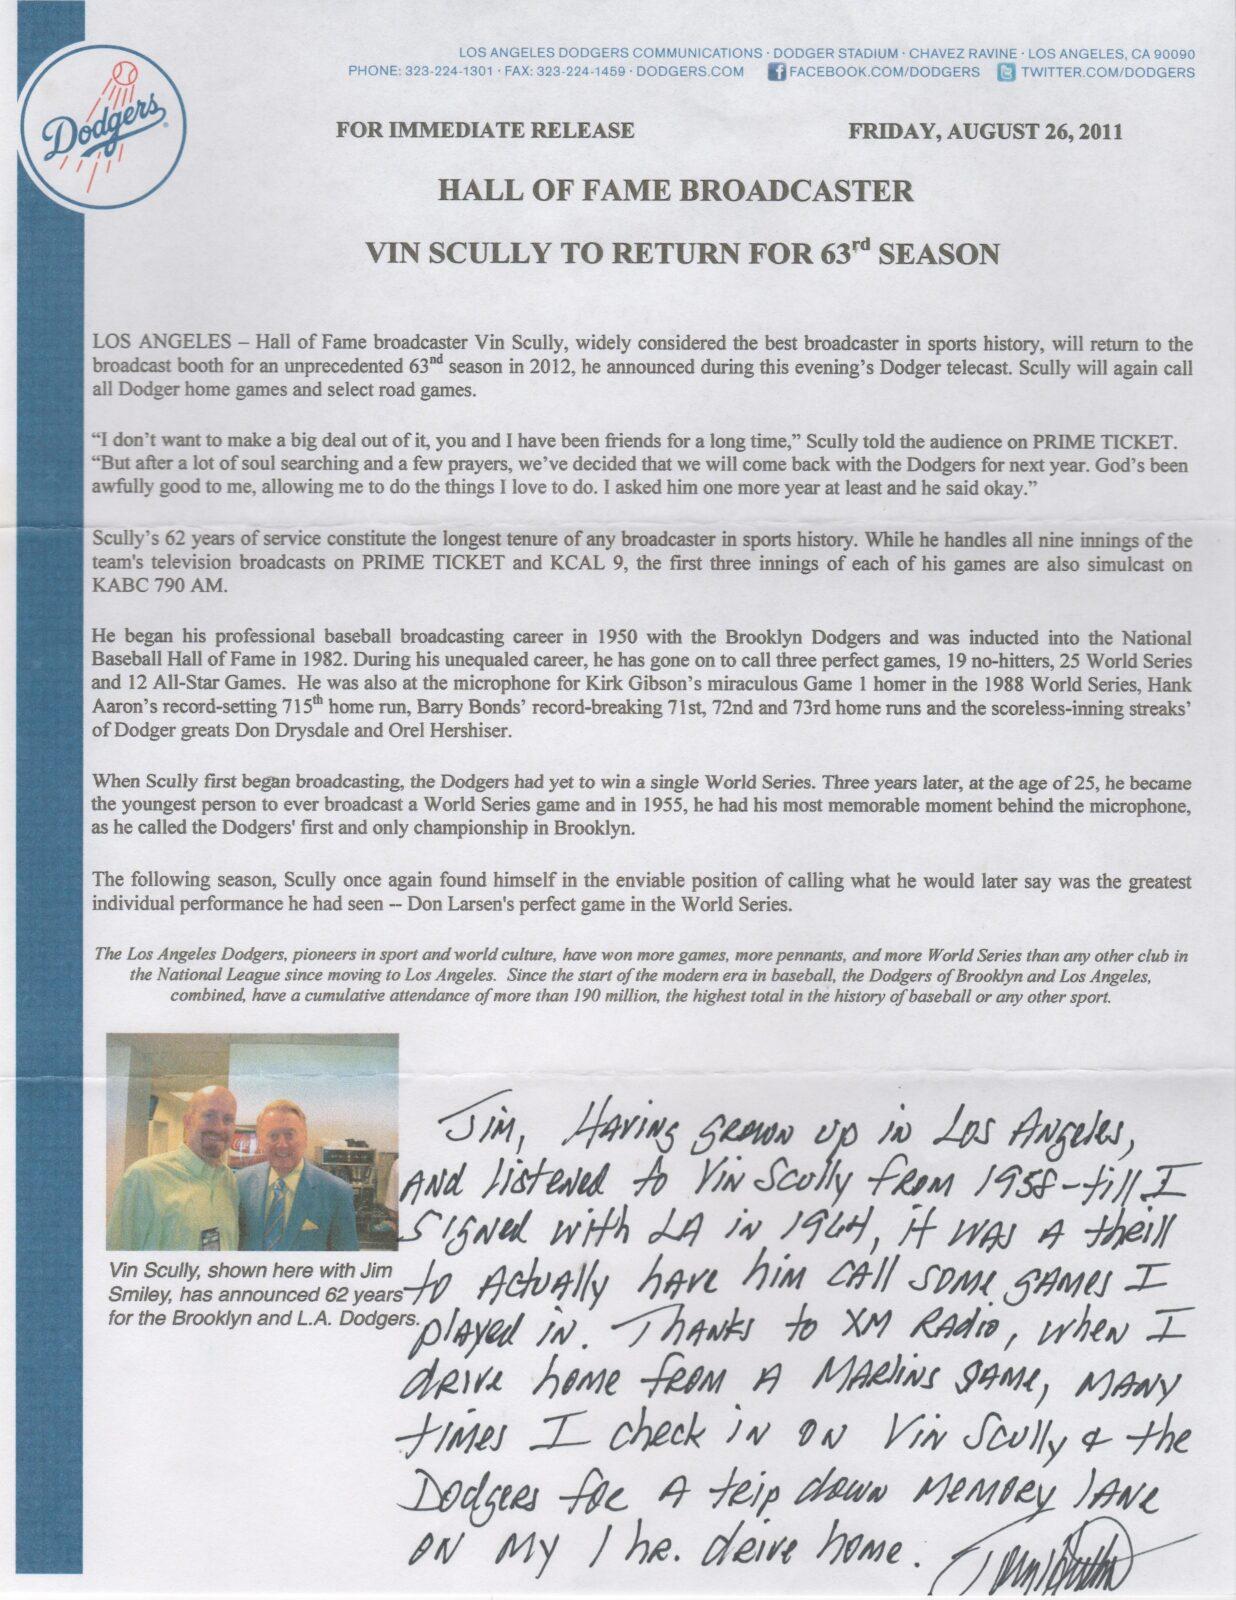 LOS ANGELES DODGERS COMMUNICATIONS · DODGER STADIUM · CHAVEZ RAVINE · LOS ANGELES, CA 90090
PHONE: 323-224-1301 · FAX: 323-224-1459 · DODGERS.COM f FACEBOOK.COM/DODGERS TWITTER.COM/DODGERS
Dodgers
FOR IMMEDIATE RELEASE FRIDAY, AUGUST 26, 2011
HALL OF FAME BROADCASTER
VIN SCULLY TO RETURN FOR 63rd SEASON
LOS ANGELES – Hall of Fame broadcaster Vin Scully, widely considered the best broadcaster in sports history, will return to the
broadcast booth for an unprecedented 63nd season in 2012, he announced during this evening's Dodger telecast. Scully will again call
all Dodger home games and select road games.
“I don't want to make a big deal out of it, you and I have been friends for a long time,” Scully told the audience on PRIME TICKET.
“But after a lot of soul searching and a few prayers, we've decided that we will come back with the Dodgers for next year. God's been
awfully good to me, allowing me to do the things I love to do. I asked him one more year at least and he said okay.”
Scully's 62 years of service constitute the longest tenure of any broadcaster in sports history. While he handles all nine innings of the
team's television broadcasts on PRIME TICKET and KCAL 9, the first three innings of each of his games are also simulcast on
KABC 790 AM.
He began his professional baseball broadcasting career in 1950 with the Brooklyn Dodgers and was inducted into the National
Baseball Hall of Fame in 1982. During his unequaled career, he has gone on to call three perfect games, 19 no-hitters, 25 World Series
and 12 All-Star Games. He was also at the microphone for Kirk Gibson's miraculous Game 1 homer in the 1988 World Series, Hank
Aaron's record-setting 715th home run, Barry Bonds' record-breaking 71st, 72nd and 73rd home runs and the scoreless-inning streaks'
of Dodger greats Don Drysdale and Orel Hershiser.
When Scully first began broadcasting, the Dodgers had yet to win a single World Series. Three years later, at the age of 25, he became
the youngest person to ever broadcast a World Series game and in 1955, he had his most memorable moment behind the microphone,
as he called the Dodgers' first and only championship in Brooklyn.
The following season, Scully once again found himself in the enviable position of calling what he would later say was the greatest
individual performance he had seen -- Don Larsen's perfect game in the World Series.
The Los Angeles Dodgers, pioneers in sport and world culture, have won more games, more pennants, and more World Series than any other club in
the National League since moving to Los Angeles. Since the start of the modern era in baseball, the Dodgers of Brooklyn and Los Angeles,
combined, have a cumulative attendance of more than 190 million, the highest total in the history of baseball or any other sport.
Vin Scully, shown here with Jim
Smiley, has announced 62 years
for the Brooklyn and L.A. Dodgers.
Jim, Having grown up in Los Angeles,
and listened to Vin Scully from 1958-till I
signed with LA in 1964, it was a thrill
to actually have him call some games I
played in. Thanks to XM Radio, when I
drive home from a Marlins game, many
times I check in on Vin Scully & the
Dodgers for a trip down memory lane
on my 1 hr. drive home.